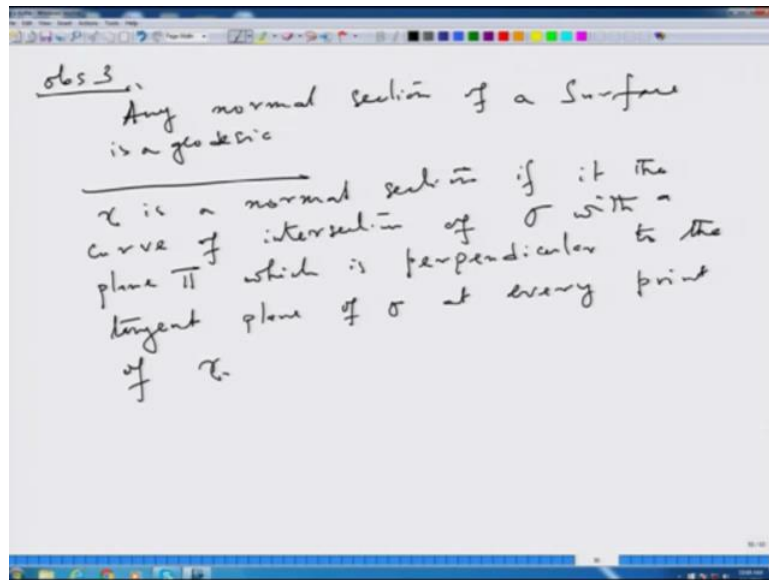 obs 3.
Any normal section of a Surface
is a geodesic
γ is a normal section if it the
curve of intersection of σ with a
plane Π which is perpendicular to the
tangent plane of σ at every point
of γ.